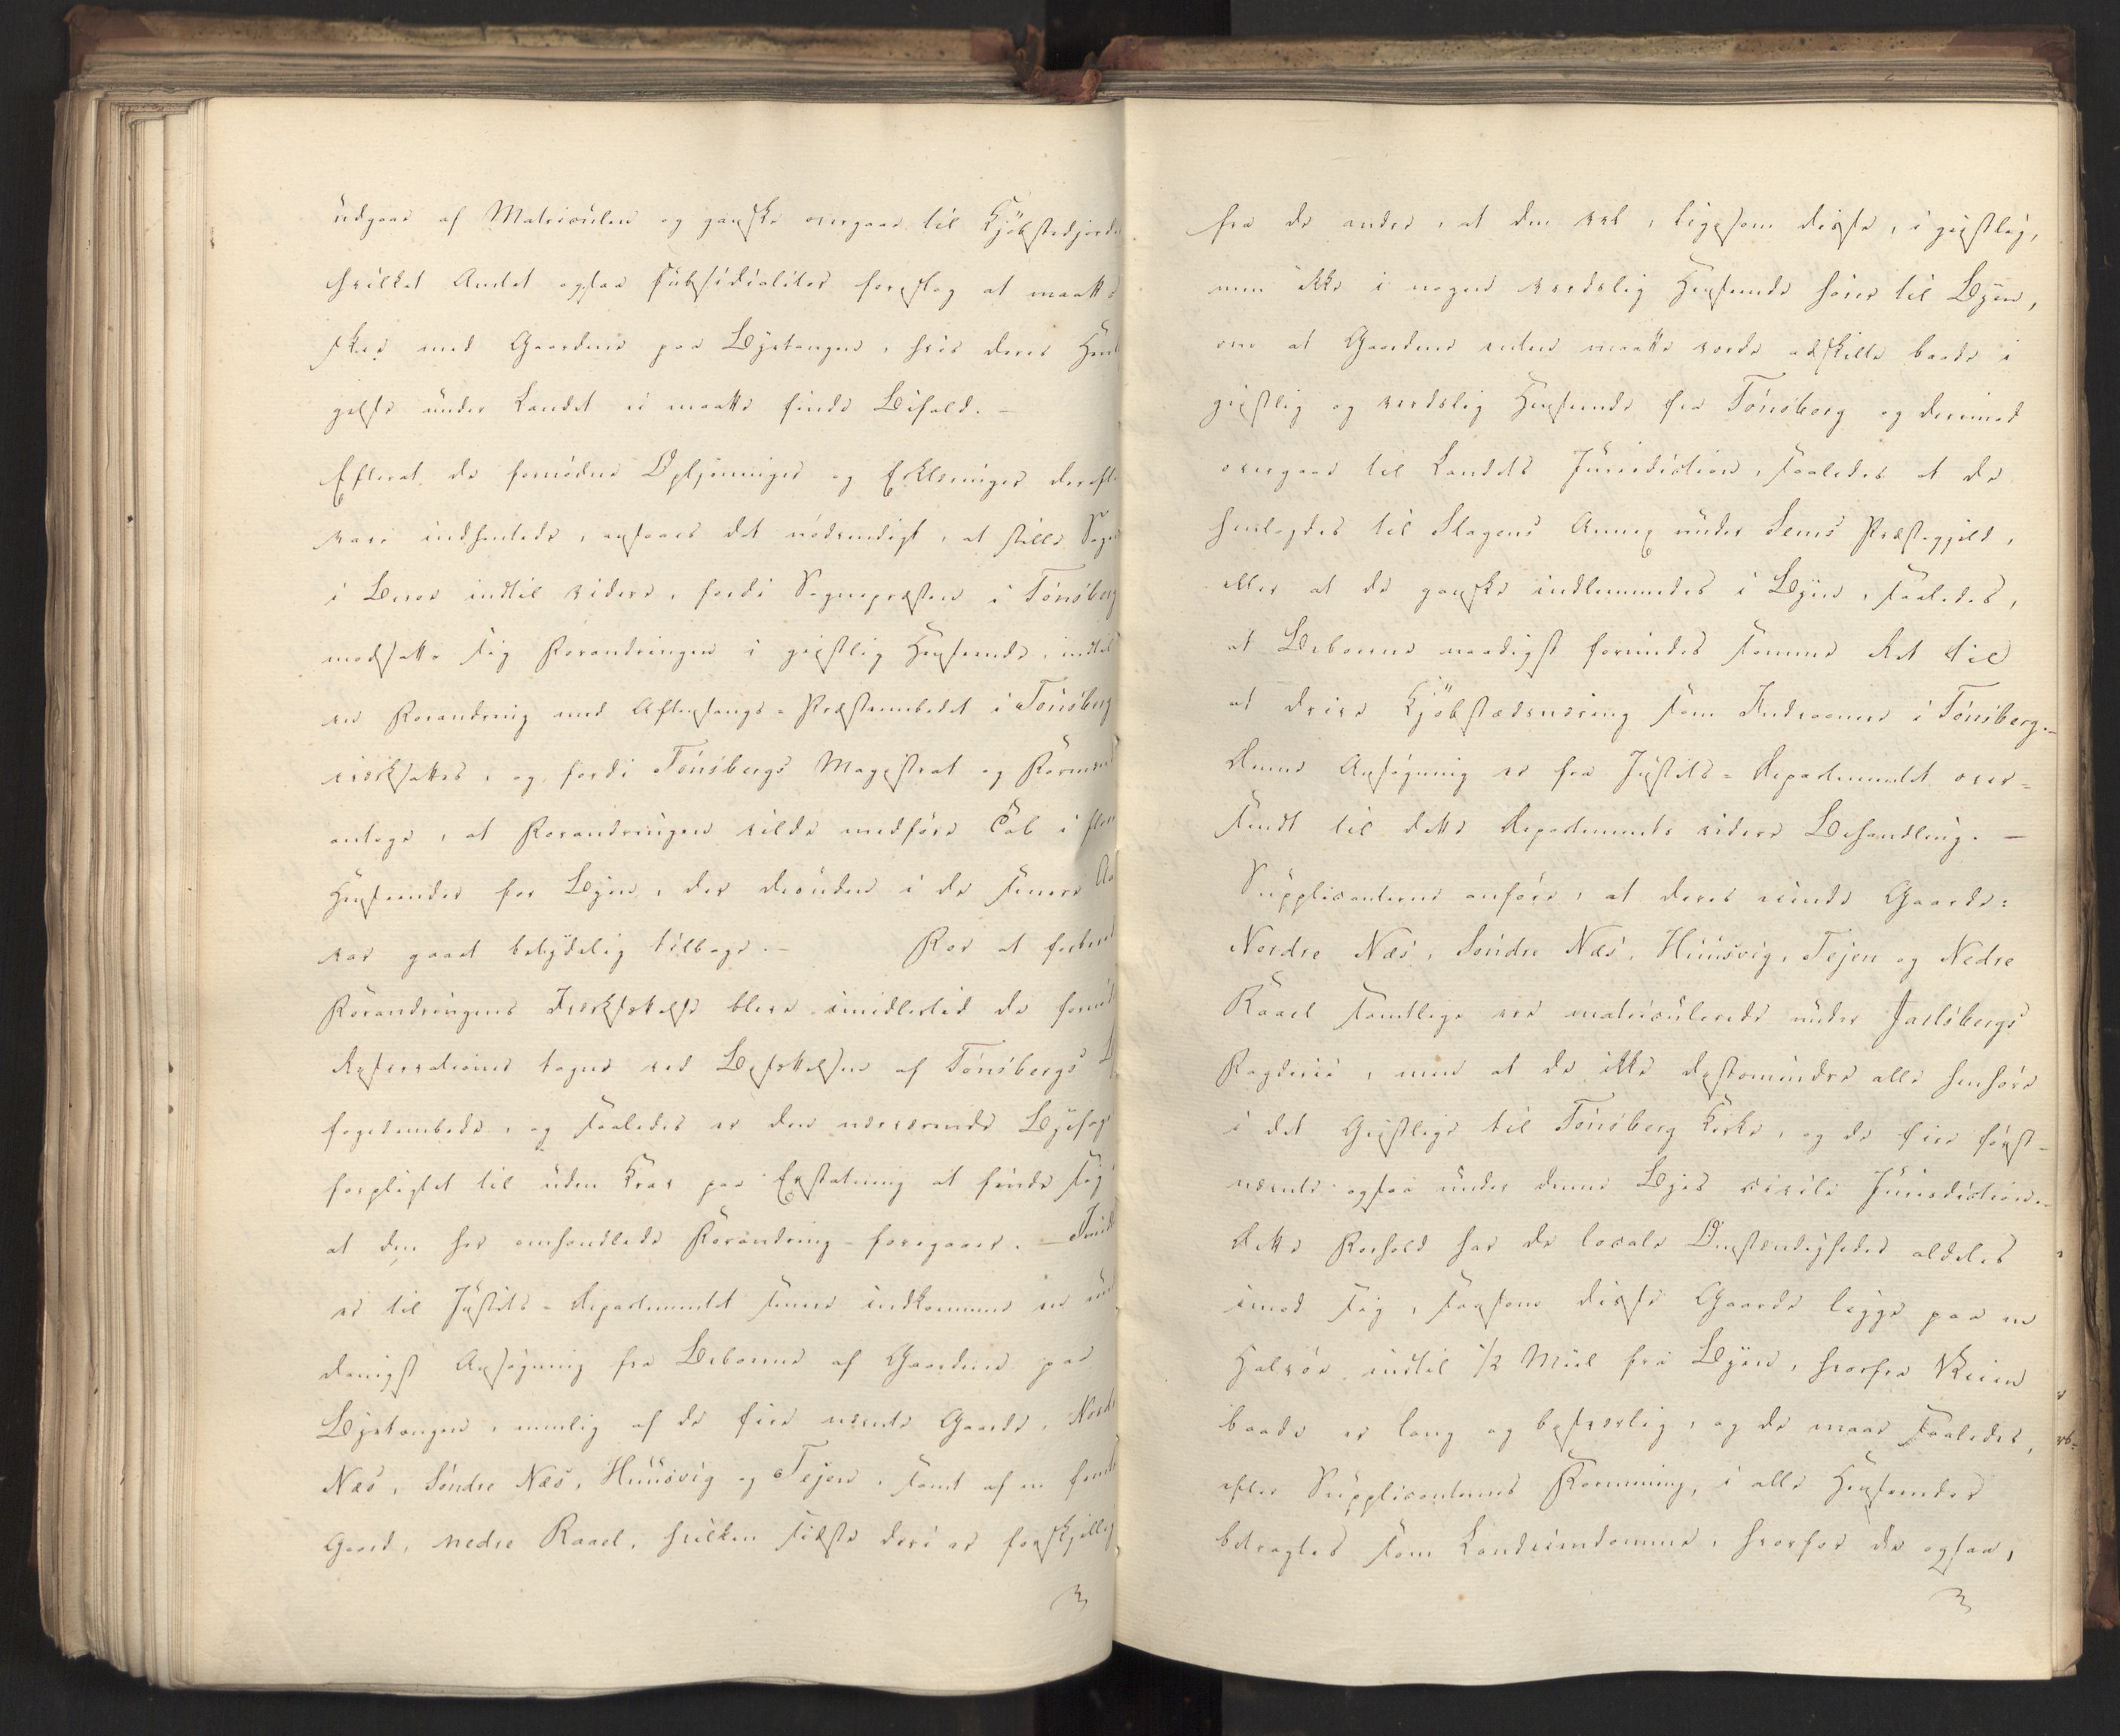 udgaae af Matriculen og ganske overgaae til Kjöbstedjorde
hvilket Andet ogsaa subsidialiter foreslog at maatte
skee med Gaardene paa Byetangen, hvis deres Hen
gelse under Landet ei maatte finde Bifald. -
Efterat de fornödne Oplysninger og Erklæringer derefte
vare indhentede, ansaaes det nödvendigt, at stille Sage
i Beroe indtil videre, fordi Sognepræsten i Tönsberg
modsatte sig Forandringen i geistlig Henseende, indtil
en Forandring med Aftensangs-Præsteembedet i Tönsberg
iværksattes, og fordi Tönsbergs Magistrat og Formænd
antoge, at Forandringen vilde medföre Tab i flere
Henseender for Byen, der desuden i de senere Aa
var gaaet betydelig tilbage. - For at forbered
Forandringens Iværksættelse bleve imidlertid de fornöd
Reservationer tagne ved Besættelsen af Tönsbergs B
fogedembede, og saaledes er den nærværende Byefoge
forpligtet til uden Krav paa Erstatning at finde sig
at den her omhandlede Forandring foregaaer. - Imid
er til Justits-Departementet senere indkommen en und
danigst Ansögning fra Beboerne af Gaardene paa
Byetangen, nemlig af de fire nævnte Gaarde, Nordre
Næs, Söndre Næs, Huusvig og Tejen, samt af en femte
Gaard, nedre Raael, hvilken sidste deri er forskjellig
fra de andre, at den vel, ligesom disse, i geistlig,
men ikke i nogen verdslig Henseende hörer til Byen,
om at Gaardene enten maatte vorde adskilte baade i
geistlig og verdslig Henseende fra Tönsberg og derimod
overgaae til Landets Jurisdiction, saaledes at de
henlagdes til Slagens Annex under Sems Præstegjeld,
eller at de ganske indlemmedes i Byen, saaledes,
at Beboerne naadigst forundes samme Ret til
at drive Kjöbstædnæring som Indvaanere i Tönsberg. -
Denne Ansögning er fra Justits-Departementet over-
sendt til dette Departements videre Behandling. -
Supplicanterne anföre, at deres eiende Gaarde:
Nordre Næs, Söndre Næs, Huusvig, Tejen og Nedre
Raael samtlige ere matriculerede under Jarlsbergs
Fogderie, men at de ikke destomindre alle henhöre
i det Geistlige til Tönsberg Kirke, og de fire först-
nævnte ogsaa under denne Byes civile Jurisdiction. -
Dette Forhold har de locale Omstændigheder aldeles
imod sig, saasom disse Gaarde ligge paa en
Halvöe indtil 1/2 Miil fra Byen, hvorfra Veien
baade er lang og besværlig, og de maae saaledes,
efter Supplicanternes Formening, i alle Henseender
betragtes som Landeiendomme, hvorfor de ogsaa,